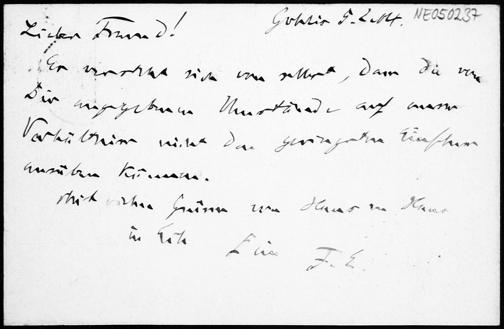 NE050237
Lieber Freund!
Es versteht sich von selbst, dass die von
Dir angegebenen Umstände auf unser
Verhältniss nicht den geringsten Einfluss
ausüben können.
Mit vielen Grüssen von Haus zu Haus
in Eile Dein F. E.